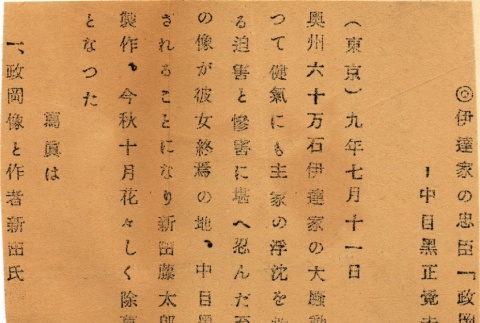 ◎伊達家の忠臣「政岡
ー中目黒正覚
(東京)九年七月十一日
奥州六十万石伊達家の大騒動
つて健氣にも主家の浮沈を
る迫害と惨害に堪へ忍んだ
の像が彼女終焉の地、中目黒
されることになり新田藤太郎
製作、今秋十月花々しく除幕
となつた
寫眞は
一、政岡像と作者新田氏